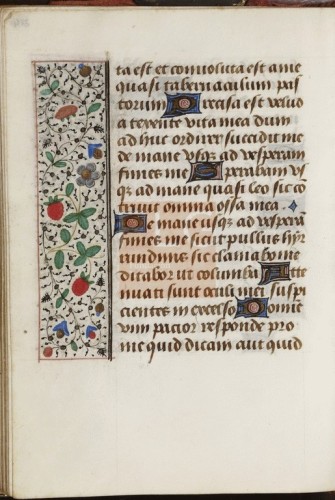 ta est et convoluta est a me
quasi tabernaculum pas
torum Precisa est velud
a texente vita mea dum
ad huc ordirer succidit me
de mane usque ad vesperam
finies me Sperabam us
que ad mane quasi leo sic co
trivit omnia ossa mea.
De mane usque ad vesperā
finies me sicut pullus hyr
rundinis sic clamabo me
ditabor ut columba Atte
nuati sunt oculi mei suspi
cientes in excelso Domine
vim pacior responde pro
me quid dicam aut quid